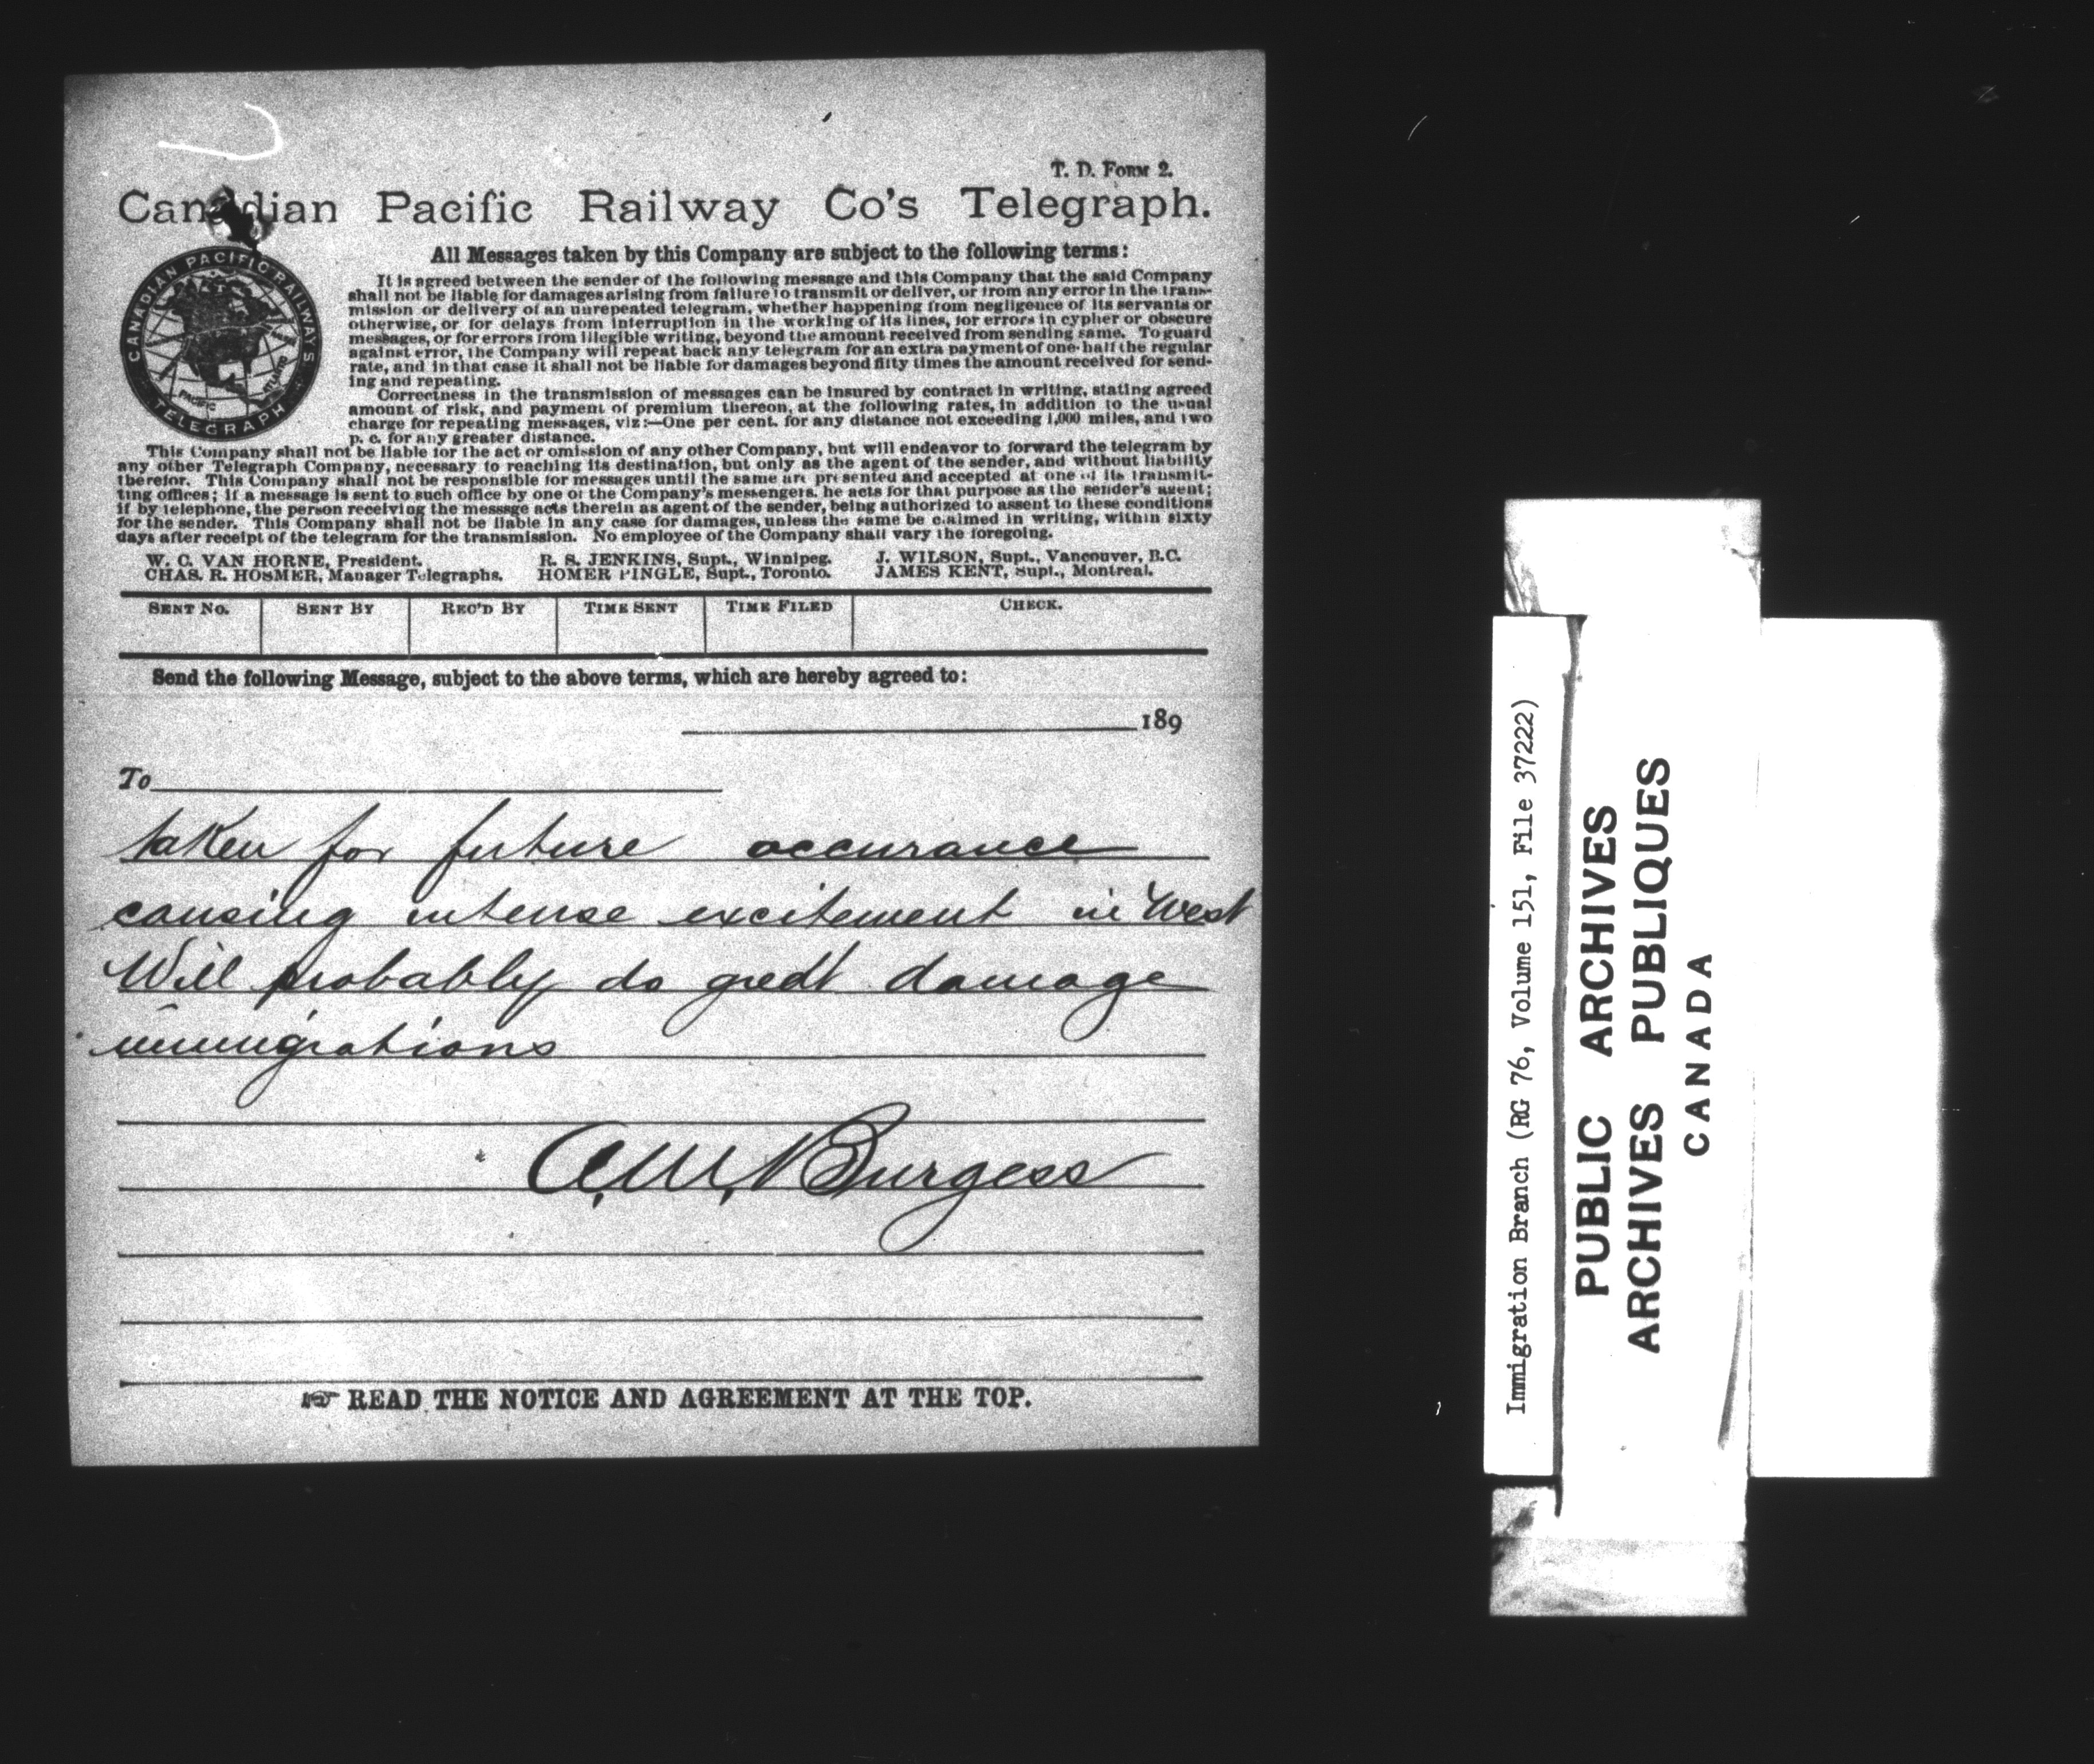 T. D. Form 2.
Canadian Pacific Railway Co's Telegraph.
All Messages taken by this Company are subject to the following terms:
CANADIAN PACIFIC RAILWAY'S TELEGRAPH
PACIFIC
It is agreed between the sender of the following message and this Company that the said Company
shall not be liable for damages arising from failure to transmit or deliver, or from any error in the trans-
mission or delivery of an unrepeated telegram, whether happening from negligence of its servants or
otherwise, or for delays from interruption in the working of its lines, for errors in cypher or obscure
messages, or for errors from illegible writing, beyond the amount received from sending same. To guard
against error, the Company will repeat back any telegram for an extra payment of one-half the regular
rate, and in that case it shall not be liable for damages beyond fifty times the amount received for send-
ing and repeating.
Correctness in the transmission of messages can be insured by contract in writing, stating agreed
amount of risk, and payment of premium thereon, at the following rates, in addition to the usual
charge for repeating messages, viz:—One per cent. for any distance not exceeding 1,000 miles, and two
p. c. for any greater distance.
This Company shall not be liable for the act or omission of any other Company, but will endeavor to forward the telegram by
any other Telegraph Company, necessary to reaching its destination, but only as the agent of the sender, and without liability
therefor. This Company shall not be responsible for messages until the same are presented and accepted at one of its transmit-
ting offices; if a message is sent to such office by one of the Company's messengers, he acts for that purpose as the sender's agent;
if by telephone, the person receiving the message acts therein as agent of the sender, being authorized to assent to these conditions
for the sender. This Company shall not be liable in any case for damages, unless the same be claimed in writing, within sixty
days after receipt of the telegram for the transmission. No employee of the Company shall vary the foregoing.
W. C. VAN HORNE, President. R. S. JENKINS, Supt., Winnipeg. J. WILSON, Supt., Vancouver, B.C.
CHAS. R. HOSMER, Manager Telegraphs. HOMER PINGLE, Supt., Toronto. JAMES KENT, Supt., Montreal.
Sent No. Sent By Rec'd By Time Sent Time Filed Check.
Send the following Message, subject to the above terms, which are hereby agreed to:
189
To
taken for future occurance
causing intense excitement in West
Will probably do great damage
immigrations
A. M. Burgess
READ THE NOTICE AND AGREEMENT AT THE TOP.
Immigration Branch (RG 76, Volume 151, File 37222)
PUBLIC ARCHIVES
ARCHIVES PUBLIQUES
CANADA